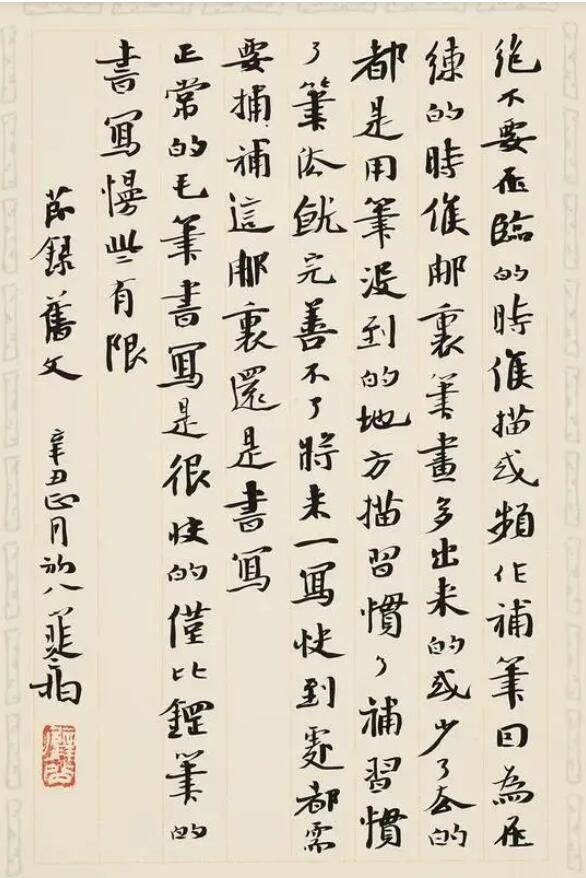 絶不要在臨的時候描或頻作補筆因為在
練的時候那裏筆畫多出来的或少了去的
都是用筆没到的地方描習慣了補習慣
了筆法就完善不了將来一寫快到處都需
要捕補這那裏還是書寫
正常的毛筆書寫是很快的僅比鋼筆的
書寫慢些有限
節録舊文 辛丑正月初八